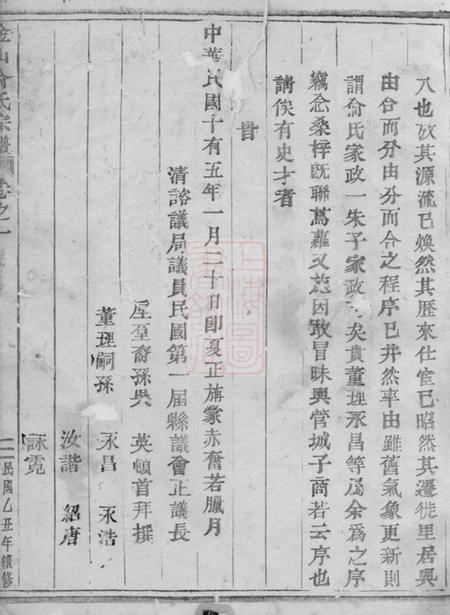 八也攷其源流已煥然其歷來仕宦已昭然其遷徙里居與
由合而分由分而合之程序已井然率由雖舊氣象更新則
謂俞氏家政一朱子家政可矣貴董理永昌等屬余爲之序
竊念桑梓旣聯蔦蘿又施因敢冒昧與管城子商若云序也
請俟有史才者
旹
中華民國十有五年一月三十日卽夏正旃蒙赤奮若臘月
清諮議局議員民國第一届縣議會正議長
屋至裔孫
英頓首拜撰
董理嗣孫
永昌
永浩
汝諧
紹唐
詠霓
金山俞氏宗譜
卷之一
二
民國乙丑年續修
上海圖書館藏